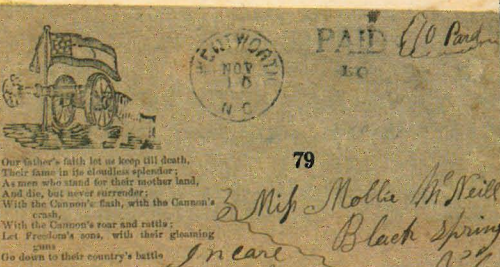 WENTWORTH
NOV
10
N.C.
PAID
10
79
Our father's faith let us keep till death,
Their fame in its cloudless splendor;
As men who stand for their mother land,
And die, but never surrender;
With the Cannon's flash, with the Cannon's
crash,
With the Cannon's roar and rattle;
Let Freedom's sons, with their gleaming
guns
Go down to their country's battle
Miss Mollie McNeill
Black Spring
In care